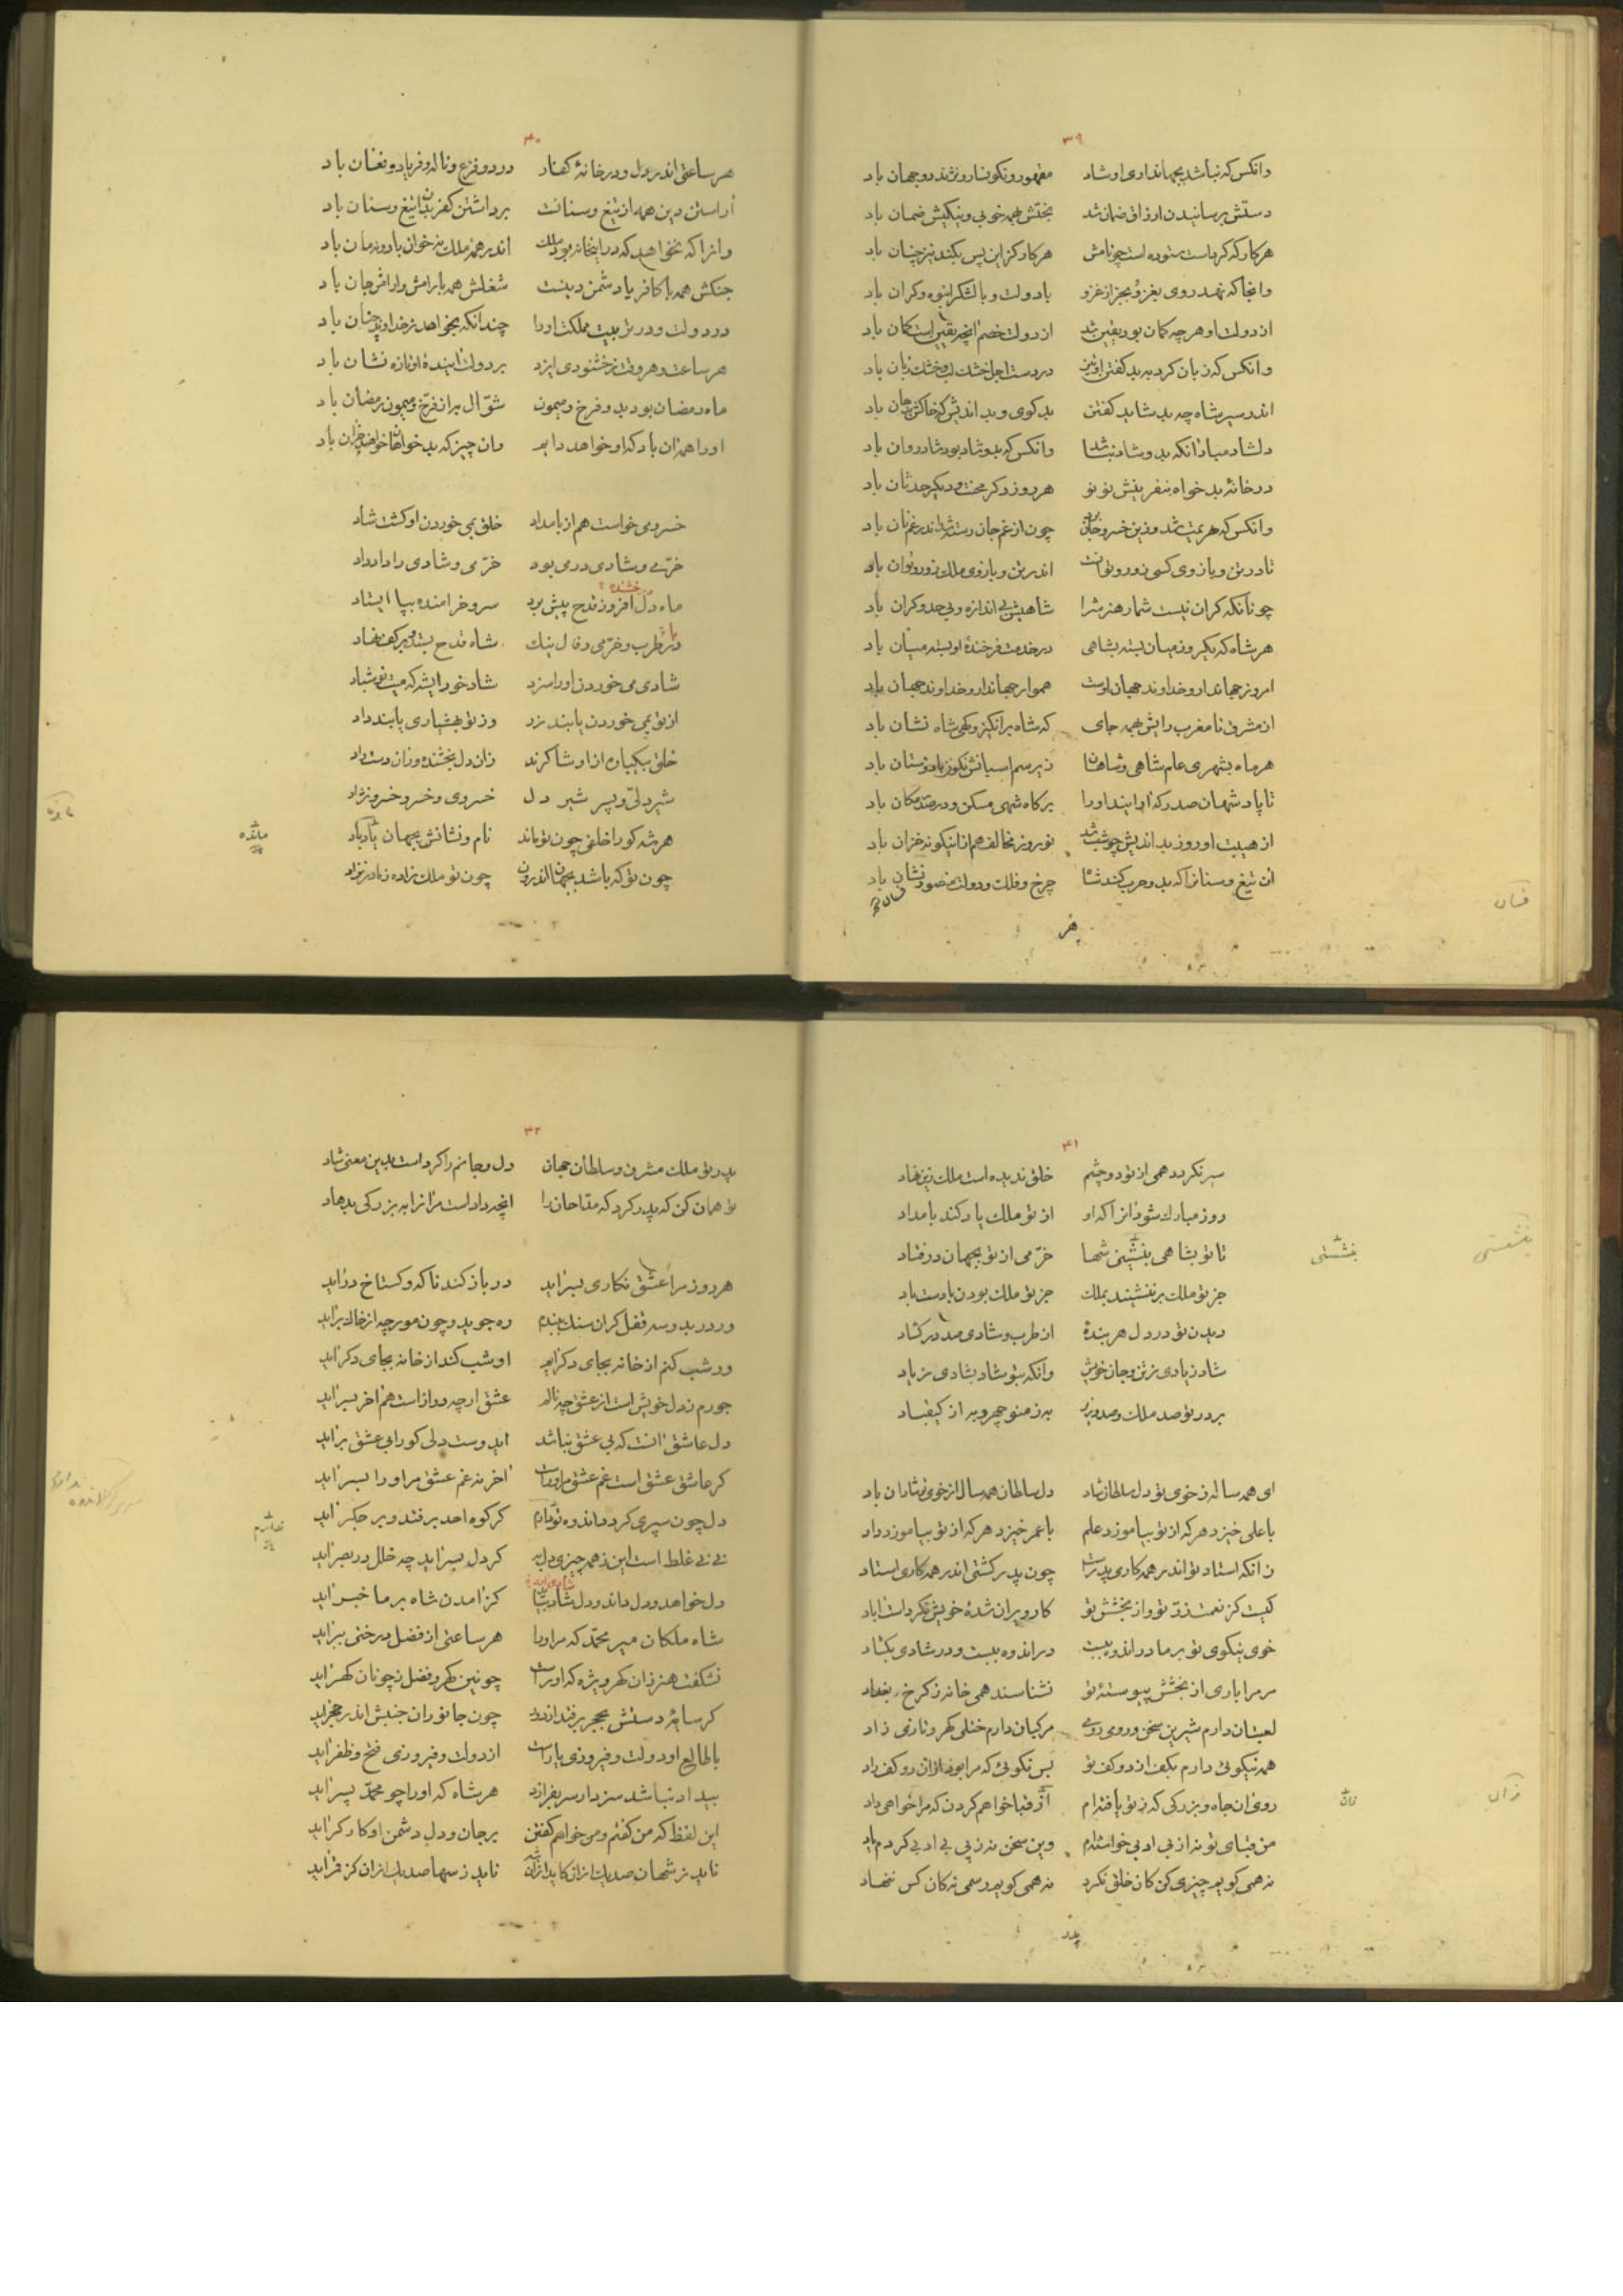 ۳۹
وانکس که نباشد بجهانداری او شاد مقهور و نکونسار و نژند دو جهان باد
دستش برسانیدن ارزاق ضمان شد بختش بهمه خوبی و نیکیش ضمان باد
هر کار که کرداست ستوده است چو نامش هر کار کزین پس بکند نیز چنان باد
وانجا که نهد روی بغزو و بجز از غزو با دولت و با لشکر انبوه و کران باد
از دولت او هر چه کمان بود یقین شد از دولت خصم انچه یقین است کمان باد
وانکس که زبان کرد به بد کفتن او تیز در دست اجل خشک لب و خشک زبان باد
اندر سیر شاه چه بد شاید کفتن بد کوی و بد اندیش که خاکش بدهان باد
دلشاد مباد انکه بدو شاد نباشد وانکس که بدو شاد بود شاد روان باد
در خانه بدخواه بنفرینش نو نو هر روز دکر محنت و دیکر حدثان باد
وانکس که هزیمت شد وزین خسرو جان برد چون از غم جان رسته شد اندر غم نان باد
تا در تن و بازوی کسی زور و توانست اندر تن و بازوی ملک زور و توان باد
چونانکه کران نیست شمار هنرش را شاهیش بی اندازه و بی حد و کران باد
هر شاه که یکروز میان بسته بشاهی در خدمت فرخنده او بسته میان باد
امروز جهاندار و خداوند جهان اوست هموار جهاندار و خداوند جهان باد
از مشرق تا مغرب رایش بهمه جای که شاه برانکیز و کهی شاه نشان باد
هر ماه بشهری علم شاهی و شاهان زیر سم اسبانش نکون باد و ستان باد
تا پادشهان صدر که آرایند او را برکاه شهی مسکن و در صدر مکان باد
از هیبت او روز بداندیش چو شب شد نوروز مخالف هم ازینکونه خزان باد
آن تیغ و سنان را که بدو حرب کند شاه چرخ و فلک و دولت منصور فسان باد
هر
فسان
۴۰
هر ساعتی اندر دل و در خانه کفار درد و فزع و ناله و فریاد و فغان باد
آراستن دین همه از تیغ و سنانست برداشتن کفر بدان تیغ و سنان باد
وانرا که نخواهد که درین خانه بود ملک اندر همه ملک نه خوان باد و نه مان باد
جنکش همه با کافر یا دشمن دینست شغلش همه با رامش و آرامش جان باد
در دولت و در تربیت مملکت او را چندانکه بخواهد ز خداوند چنان باد
هر ساعت و هر وقت ز خشنودی ایزد بر دولت آینده او تازه نشان باد
ماه رمضان بود بدو فرخ و میمون شوال به از فرخ و میمون رمضان باد
او را همه آن باد که او خواهد دایم وان چیز که بدخواهان خواهند جز آن باد
خسرو می خواست هم از بامداد خلق بمی خوردن او کشت شاد
خرمی و شادی در می بود خرمی و شادی را داد داد
ماه دل افروز قدح پیش برد سرو خرامنده بپا ایستاد
در طرب و خرمی و فال نیک شاه قدح بستد و بر کف نهاد
شادی می خوردن او را سزد شاد خور ای شه که میت نوش باد
از تو بمی خوردن یابند زر وز تو بهشیاری یابند داد
خلق بیکباره از او شاکرند زان دل بخشنده وزان دست راد
شیر دلی و پسر شیر دل خسروی و خسرو خسرو نژاد
هر شه کو را خلفی چون تو ماند نام و نشانش بجهان یاد باد
مانده
چون تو که باشد بجهان اندرون چون تو ملک زاده ز مادر نزاد
۴۱
سیر نکردد همی از تو دو چشم خلق ندیده است ملک زین نهاد
روز مبارک شود انرا که او از تو ملک یاد کند بامداد
تا تو بشاهی بنشینی شها خرمی از تو بجهان درفتاد
بنشستی
جز تو ملک برننشیند بملک جز تو ملک بودن بادست باد
دیدن تو در دل هر بنده از طرب و شادی صد در کشاد
شاد زیادی ز تن و جان خویش وانکه بتو شاد بشادی زیاد
بر در تو صد ملک و صد وزیر به ز منوچهر و به از کیقباد
ای همه ساله ز خوی تو دل سلطان شاد دل سلطان همه سال از خوی تو شادان باد
با علی خیزد هر که از تو بیاموزد علم با عمر خیزد هر که از تو بیاموزد داد
زانکه استاد تو اندر همه کاری پدرست چون پدر کشتی اندر همه کاری استاد
کیست کز نعمت تو وز تو و از بخشش تو کار ویران شده خویش نکرداست آباد
خوی نیکوی تو بر ما در اندوه ببست در اندوه ببست و در شادی بکشاد
مر مرا باری از بخشش پیوسته تو نشناسند همی خانه ز کرخ بغداد
لعبتان دارم شیرین سخن و رومی روی مرکبان دارم ختلی کهر و تازی زاد
همه نیکوئی دارم بکف از دو کف تو بس نکوئی که مرا بود از ان دو کف راد
روی ان جاه و بزرکی که ز تو یافته ام از قبا خواهم کردن که مرا خواهی داد
زان
من قبای تو نه از بی ادبی خواسته ام وین سخن نه ز پی بی ادبی کردم یاد
نه همی کویم چیزی کن کان خلق نکرد نه همی کویم رسمی نه کان کس ننهاد
پدر
۴۲
پدر تو ملک مشرق و سلطان جهان دل و جانم را کرداست بدین معنی شاد
تو همان کن که پدر کرد که مداحان را انچه داد است مر انرا به بزرکی بدهاد
هر روز مرا عشق نکاری بسر آید در باز کند ناکه و کستاخ درآید
ور در به دو سه قفل کران سنک ببندم ره جوید و چون مورچه از خاک برآید
ور شب کنم از خانه بجای دکر آیم او شب کند از خانه بجای دکر آید
جورم ز دل خویش است از عشق چه نالم عشق ارچه دراز است هم آخر بسر آید
دل عاشق آنست که بی عشق نباشد ای دوست دلی کو را بی عشق برآید
کر عاشق عشق است غم عشق مر او راست آخر نه غم عشق مر او را بسر آید
دل چون سپری کردد اندوه تو دارم کر کوه احد برفتد و بر جکر آید
نی نی غلط است این ز همه چیزی دل به کر دل بسر آید چه خلل در بصر آید
دل خواهد و دل داند و دل شاد بباشد کز آمدن شاه بر ما خبر آید
شاه ملکان میر محمد که مر او را هر ساعتی از فضل درختی ببر آید
نشکفت هنر زان کهر ویژه که او راست چونین کهر و فضل ز چونان کهر آید
کر سایه دستش بحجر برفتد از دور چون جانوران جنبش اندر حجر آید
با طالع او دولت و فیروزی یارست از دولت و فیروزی فتح و ظفر آید
بیداد نباشد سزد ار سر بفرازد هر شاه که او را چو محمد پسر آید
این لفظ که من کفتم و من خواهم کفتن بر جان و دل دشمن او کارکر آید
ناید ز شهان صد یک ازان کاید ازان ناید ز سها صد یک ازان کز قمر آید